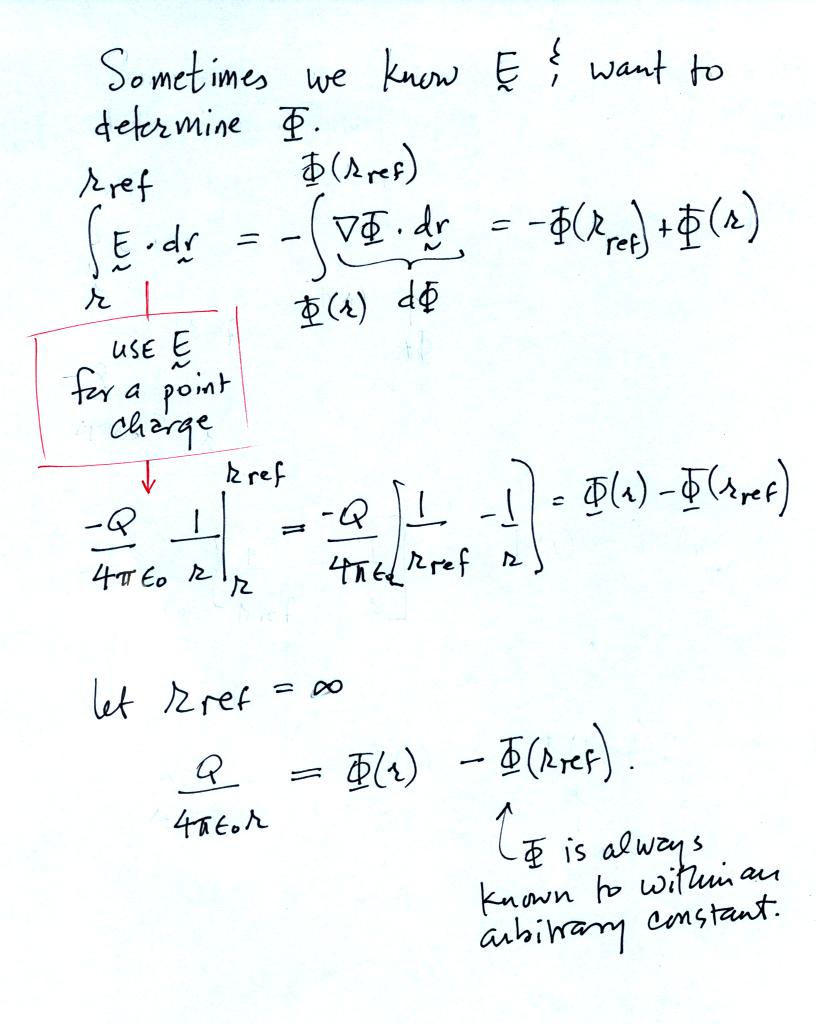 Sometimes we know E & want to
determine Φ.
∫_r^{r ref} E · dr = -∫_{Φ(r)}^{Φ(r ref)} ∇Φ · dr = -Φ(r ref) + Φ(r)
dΦ
USE E
for a point
charge
-Q/4πε₀ 1/r |_r^{r ref} = -Q/4πε₀ [1/r ref - 1/r] = Φ(r) - Φ(r ref)
let r ref = ∞
Q/4πε₀r = Φ(r) - Φ(r ref).
Φ is always
known to within an
arbitrary constant.